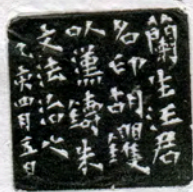 蘭生法居
名印胡钁
以漢鑄朱
文法治之
乙亥四月五日